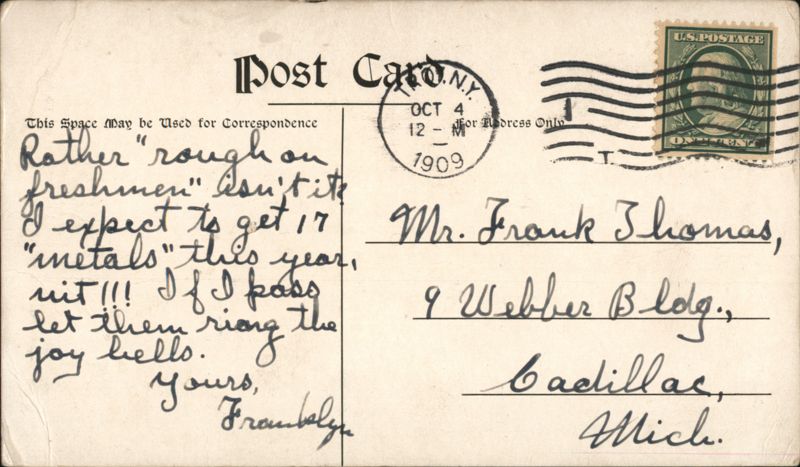 Post Card
This Space May be Used for Correspondence
For Address Only
TROY, N.Y.
OCT 4
12 - M
1909
1
T.
U.S. POSTAGE
ONE CENT
Rather "rough on
freshmen" isn't it?
I expect to get 17
"metals" this year,
nit!!! If I pass
let them ring the
joy bells.
Yours,
Franklyn
Mr. Frank Thomas,
9 Webber Bldg.,
Cadillac,
Mich.